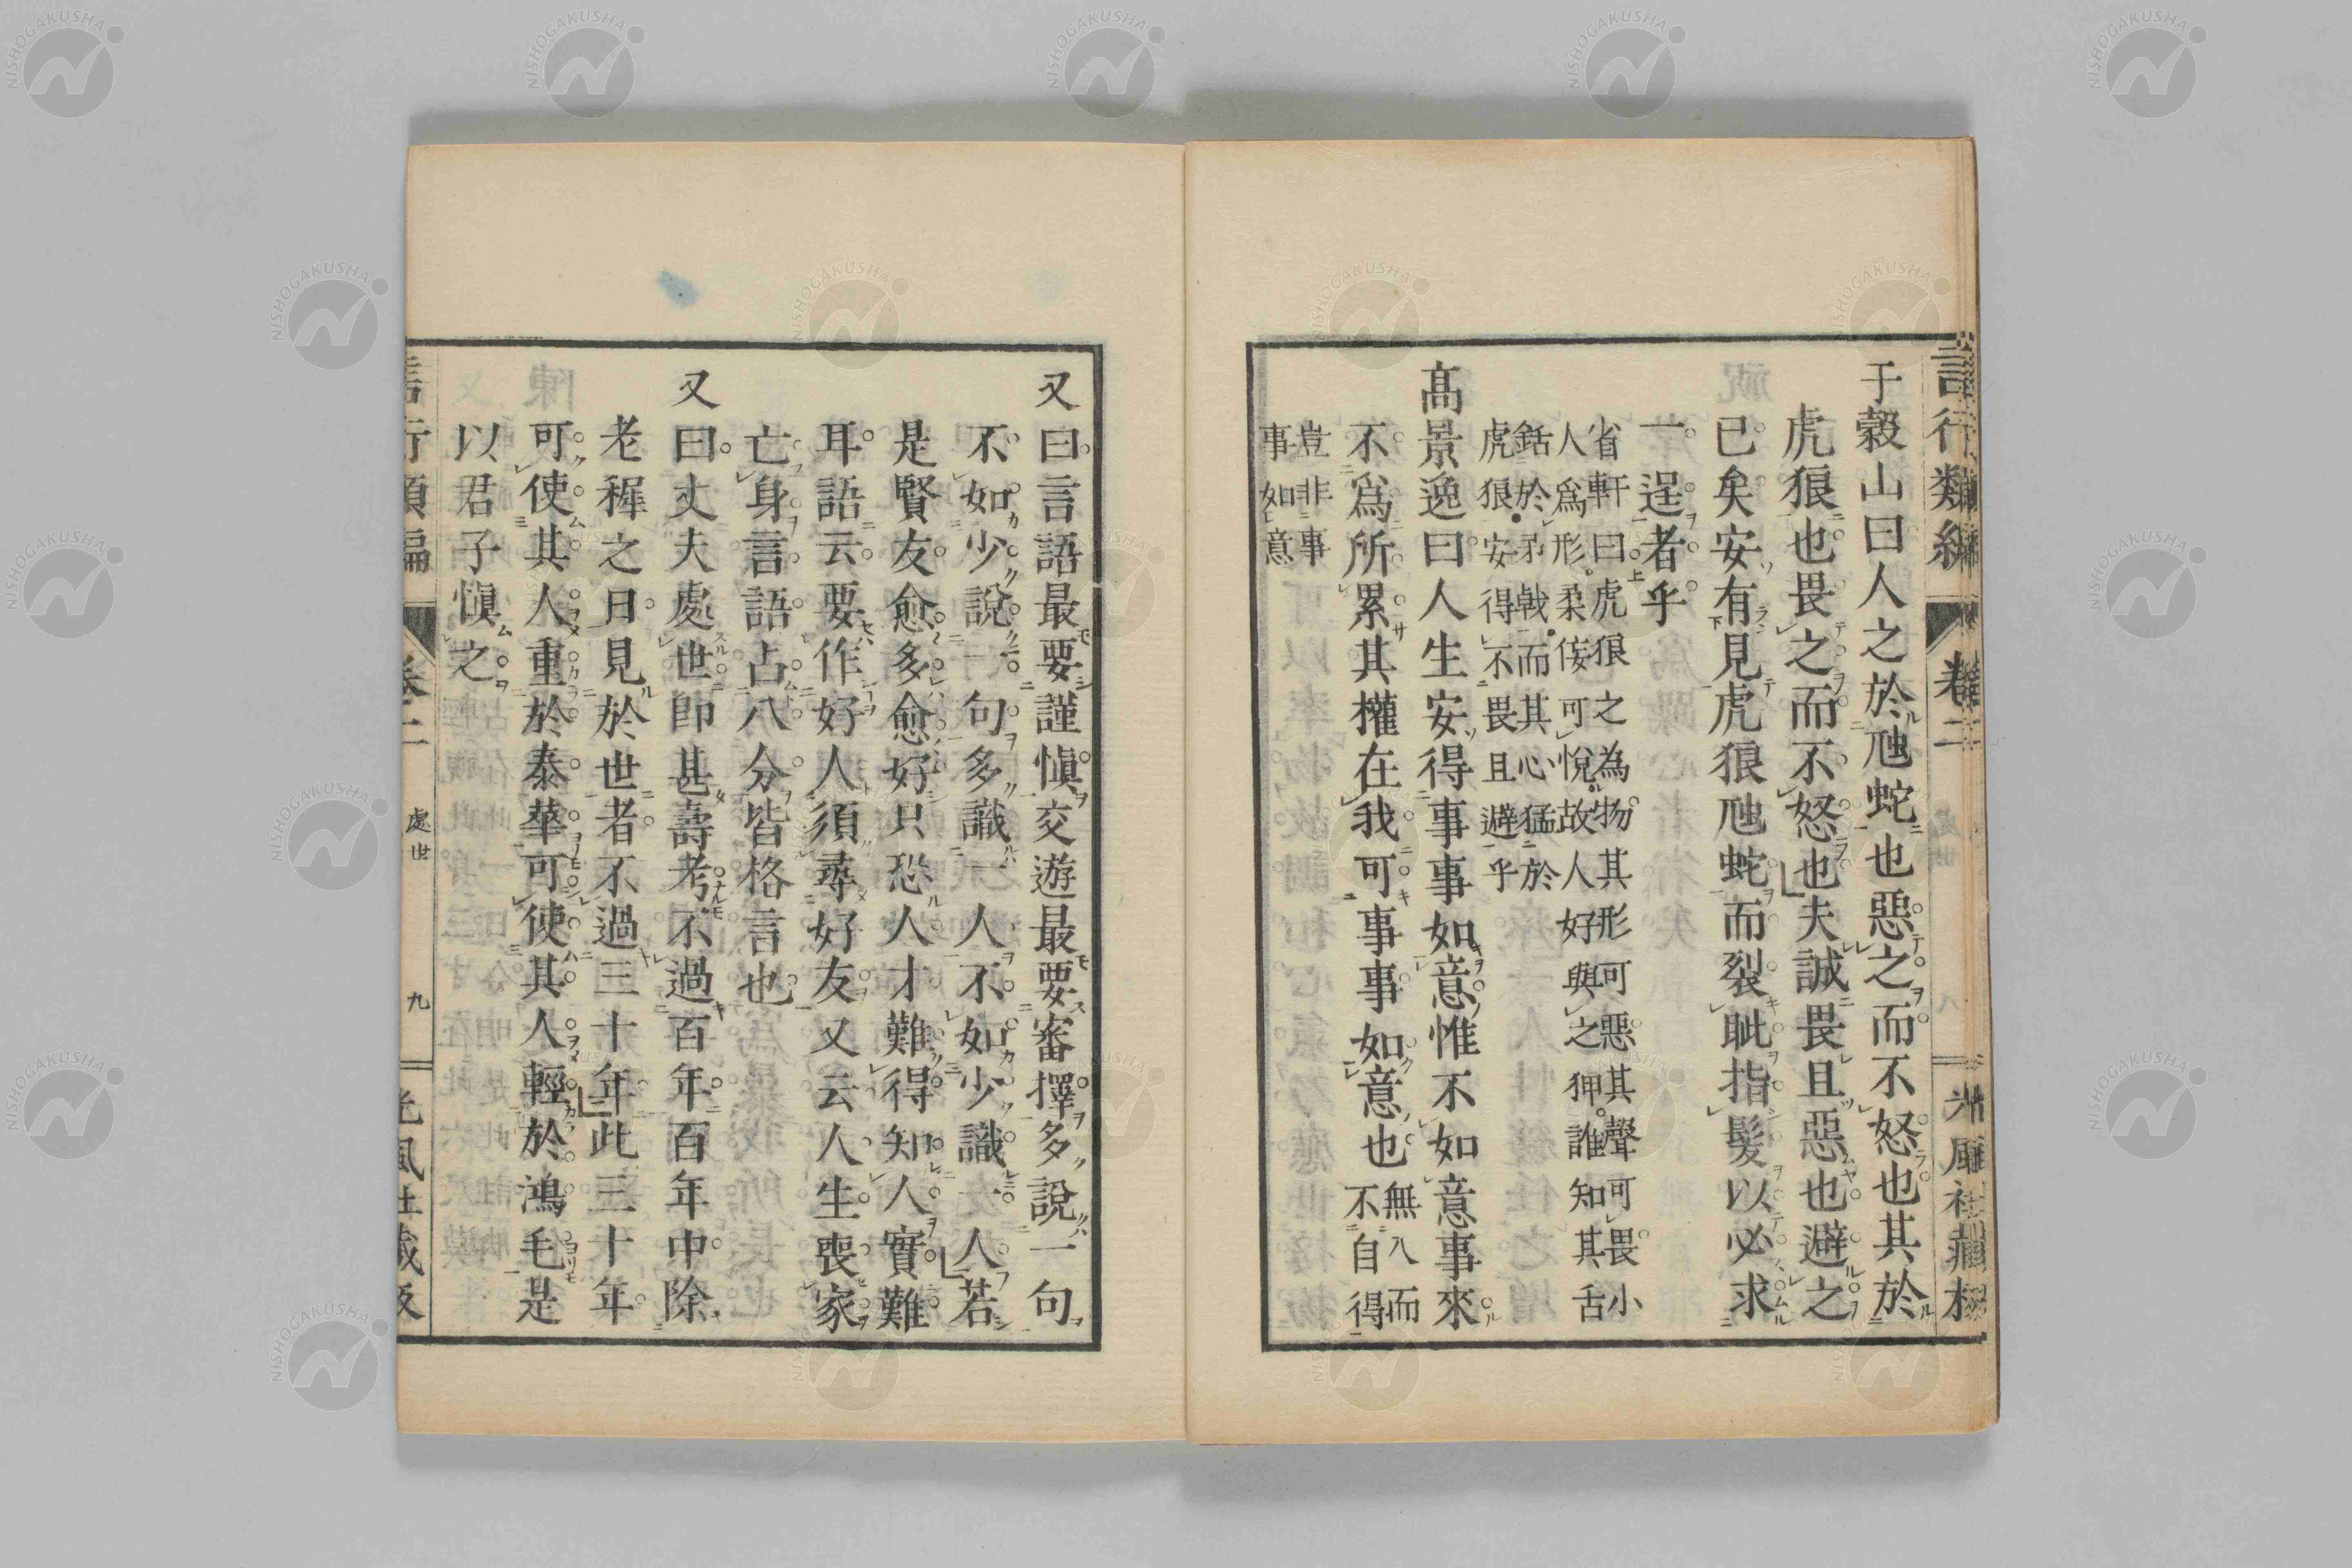 言行類編 卷二
于穀山曰人之於虺蛇也惡之而不怒也其於
虎狼也畏之而不怒也夫誠畏且惡也避之
已矣安有見虎狼虺蛇而裂眦指髮以必求
一逞者乎
省軒曰虎狼之為物其形可惡其聲可畏小
人爲形柔侫可悅故人好與之狎誰知其舌
銛於矛戟而其心猛於
虎狼安得不畏且避乎
髙景逸曰人生安得事事如意惟不如意事來
不爲所累其權在我可事事如意也
無入而
不自得
豈非事
事如意
又曰言語最要謹愼交遊最要審擇多說一句
不如少說一句多識一人不如少識一人若
是賢友愈多愈好只恐人才難得知人實難
耳語云要作好人須尋好友又云人生喪家
亡身言語占八分皆格言也
又曰丈夫處世卽甚壽考不過百年百年中除
老穉之日見於世者不過三十年此三十年
可使其人重於泰華可使其人輕於鴻毛是
以君子愼之
言行類編 卷二 處世 九 光風社藏板
NISHOGAKUSHA